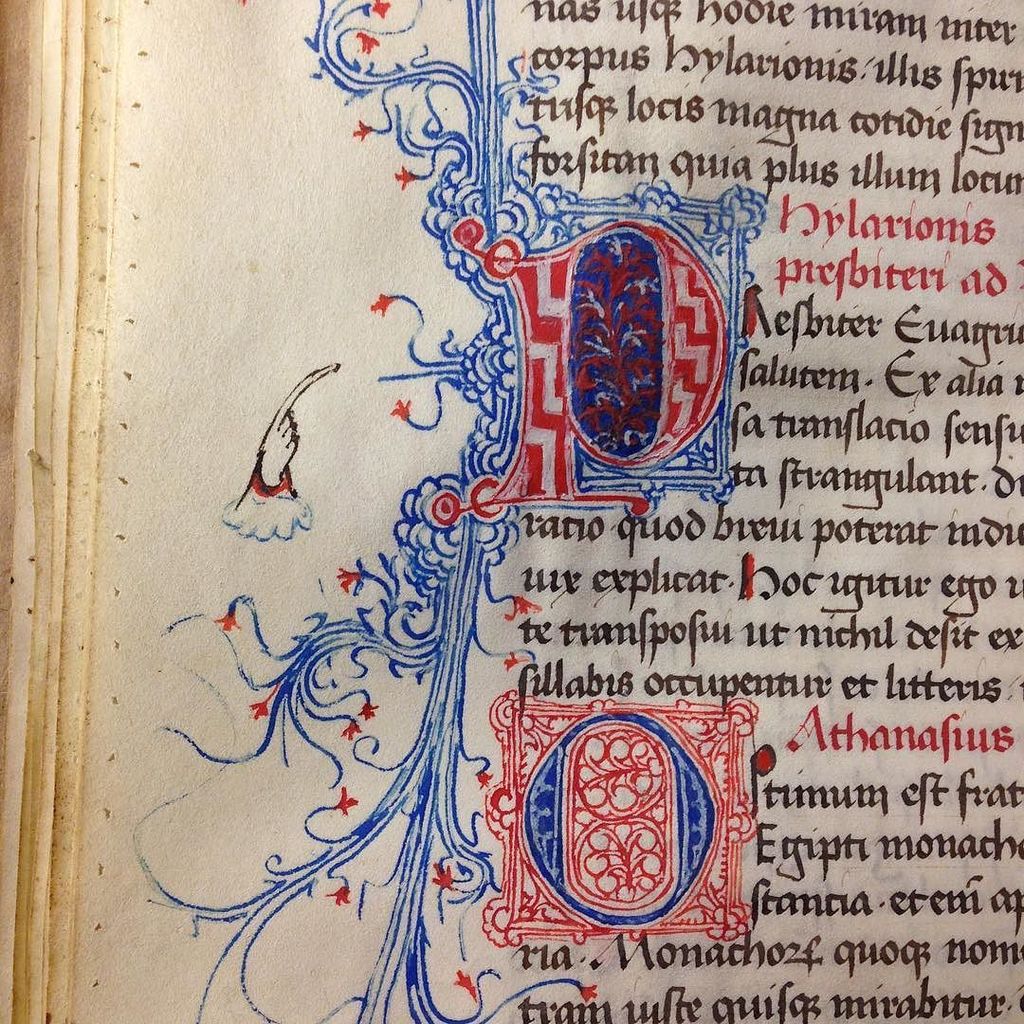 nas usqꝫ hodie miram inter
corpus hylarionis. illis spiri
tusqꝫ locis magna cotidie sign
forsitan quia plus illum locum
hylarionis
presbiteri ad
P Resbiter Euagriu
salutem. Ex alia
sa translacio sensu
ta strangulant. di
ratio quod breui poterat indu
uix explicat. hoc igitur ego
te transposui ut nichil desit ex
sillabis occupentur et litteris.
Athanasius
O ptimum est frat
Egipti monacho
stancia. etem̄ ap
ria. Monachoꝝ quoqꝫ nom
tram iuste quisqꝫ mirabitur.